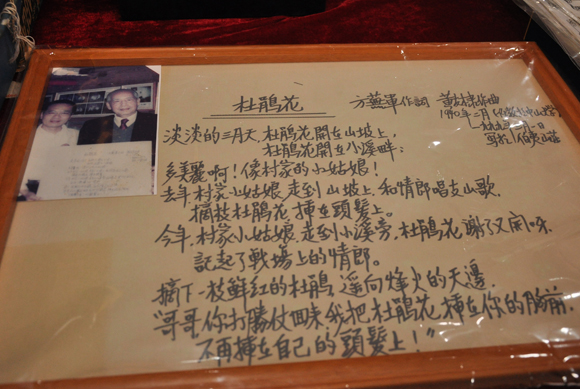 杜鵑花 方蕪軍作詞 黃友棣作曲
淡淡的三月天,杜鵑花開在山坡上,
杜鵑花開在小溪畔;
多美麗啊!像村家的小姑娘!
去年村家小姑娘,走到山坡上,和情郎唱支山歌,
摘枝杜鵑花,插在頭髮上。
今年,村家小姑娘,走到小溪旁,杜鵑花謝了又開呀,
記起了戰場上的情郎。
摘下一枝鮮紅的杜鵑,遥向烽火的天邊,
"哥哥你打勝仗回來我把杜鵑花,插在你的胸前,
不再插在自己的頭髮上!"